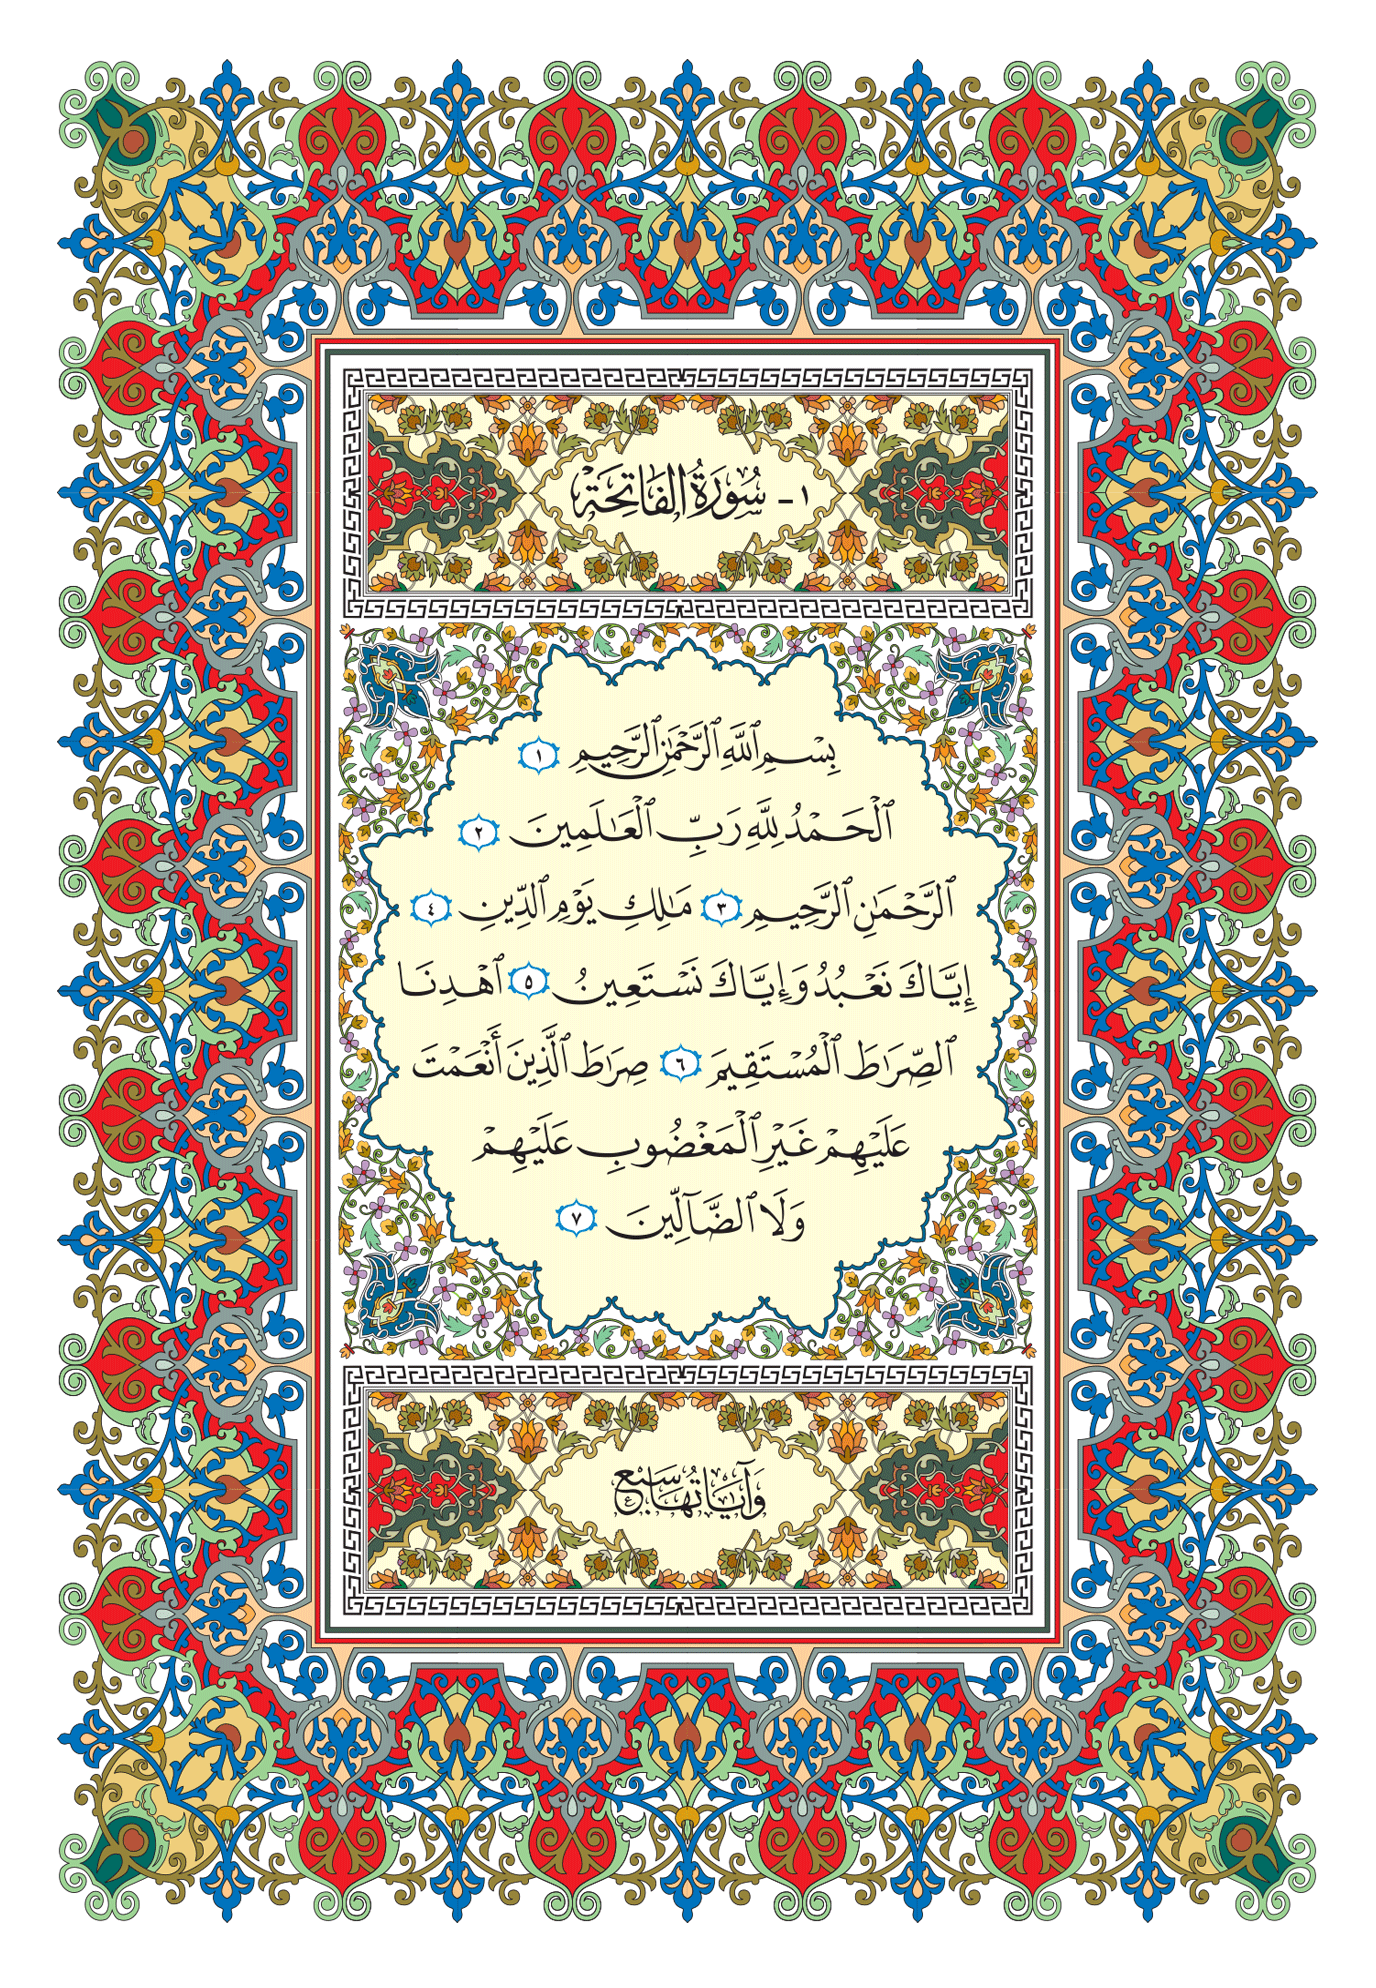 ١- سُورَةُ الفَاتِحَة
بِسْمِ ٱللَّهِ ٱلرَّحْمَٰنِ ٱلرَّحِيمِ ١
ٱلْحَمْدُ لِلَّهِ رَبِّ ٱلْعَٰلَمِينَ ٢
ٱلرَّحْمَٰنِ ٱلرَّحِيمِ ٣ مَٰلِكِ يَوْمِ ٱلدِّينِ ٤
إِيَّاكَ نَعْبُدُ وَإِيَّاكَ نَسْتَعِينُ ٥ ٱهْدِنَا
ٱلصِّرَٰطَ ٱلْمُسْتَقِيمَ ٦ صِرَٰطَ ٱلَّذِينَ أَنْعَمْتَ
عَلَيْهِمْ غَيْرِ ٱلْمَغْضُوبِ عَلَيْهِمْ
وَلَا ٱلضَّآلِّينَ ٧
وَآيَاتُهَا سَبْع